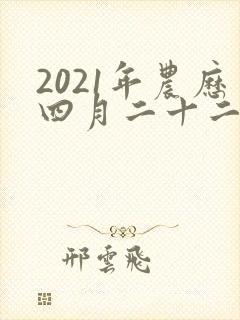 2021年農歷
四月二十二
邢雲飛